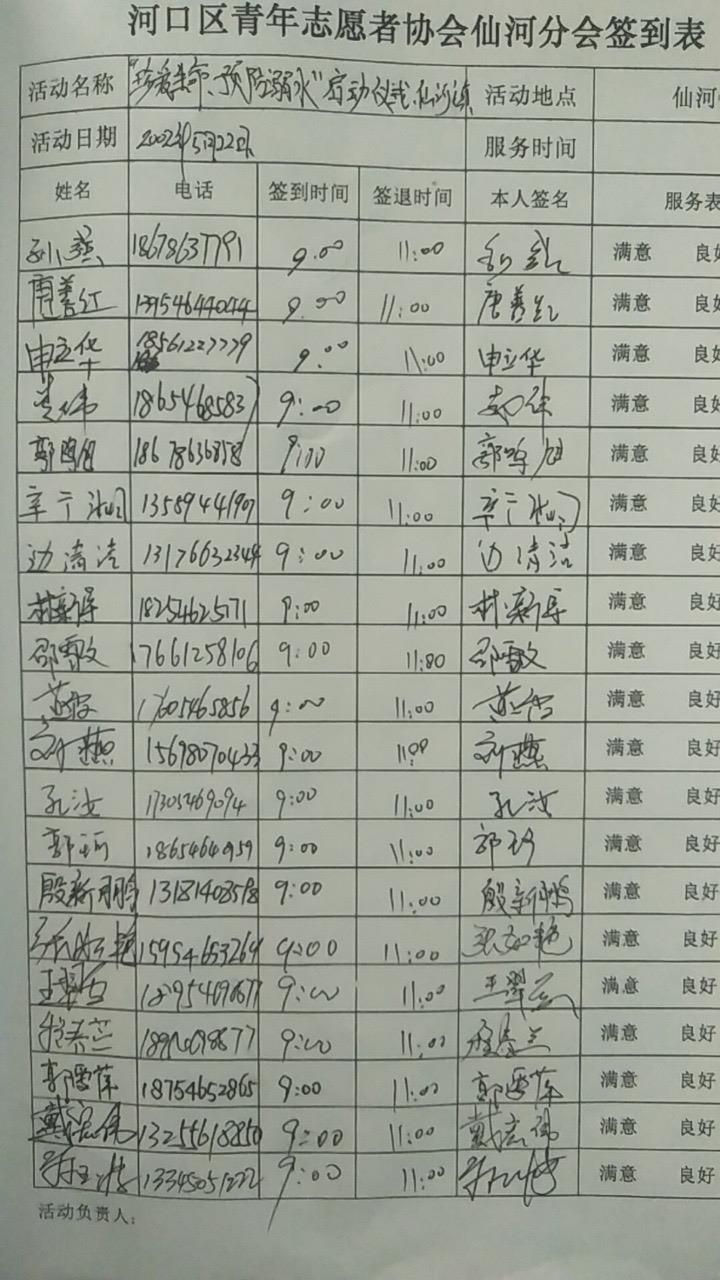 河口区青年志愿者协会仙河分会签到表
活动名称 "珍爱生命、预防溺水"启动仪式 仙河镇 活动地点 仙河
活动日期 5月22日 服务时间
姓名 电话 签到时间 签退时间 本人签名 服务表
18678637791 9:00 11:00 满意 良好
唐善红 13954644044 9:00 11:00 唐善红 满意 良好
申立华 18561227779 9:00 11:00 申立华 满意 良好
18654685837 9:00 11:00 满意 良好
郭鸣旭 18678636858 9:00 11:00 郭鸣旭 满意 良好
13589441907 9:00 11:00 满意 良好
边清洁 13176632344 9:00 11:00 边清洁 满意 良好
林新军 18254625171 9:00 11:00 林新军 满意 良好
邵雪敏 17661258106 9:00 11:00 邵雪敏 满意 良好
17605465856 9:00 11:00 满意 良好
刘燕 15698070433 9:00 11:00 刘燕 满意 良好
孔汝 17305469094 9:00 11:00 孔汝 满意 良好
18654640959 9:00 11:00 满意 良好
殷新鹏 13181408598 9:00 11:00 殷新鹏 满意 良好
张如艳 15954653269 9:00 11:00 张如艳 满意 良好
9:00 11:00 满意 良好
程春兰 9:00 11:00 程春兰 满意 良好
郭雪萍 18754652865 9:00 11:00 郭雪萍 满意 良好
戴宏伟 13255618850 9:00 11:00 戴宏伟 满意 良好
13345051222 9:00 11:00 满意 良好
活动负责人: